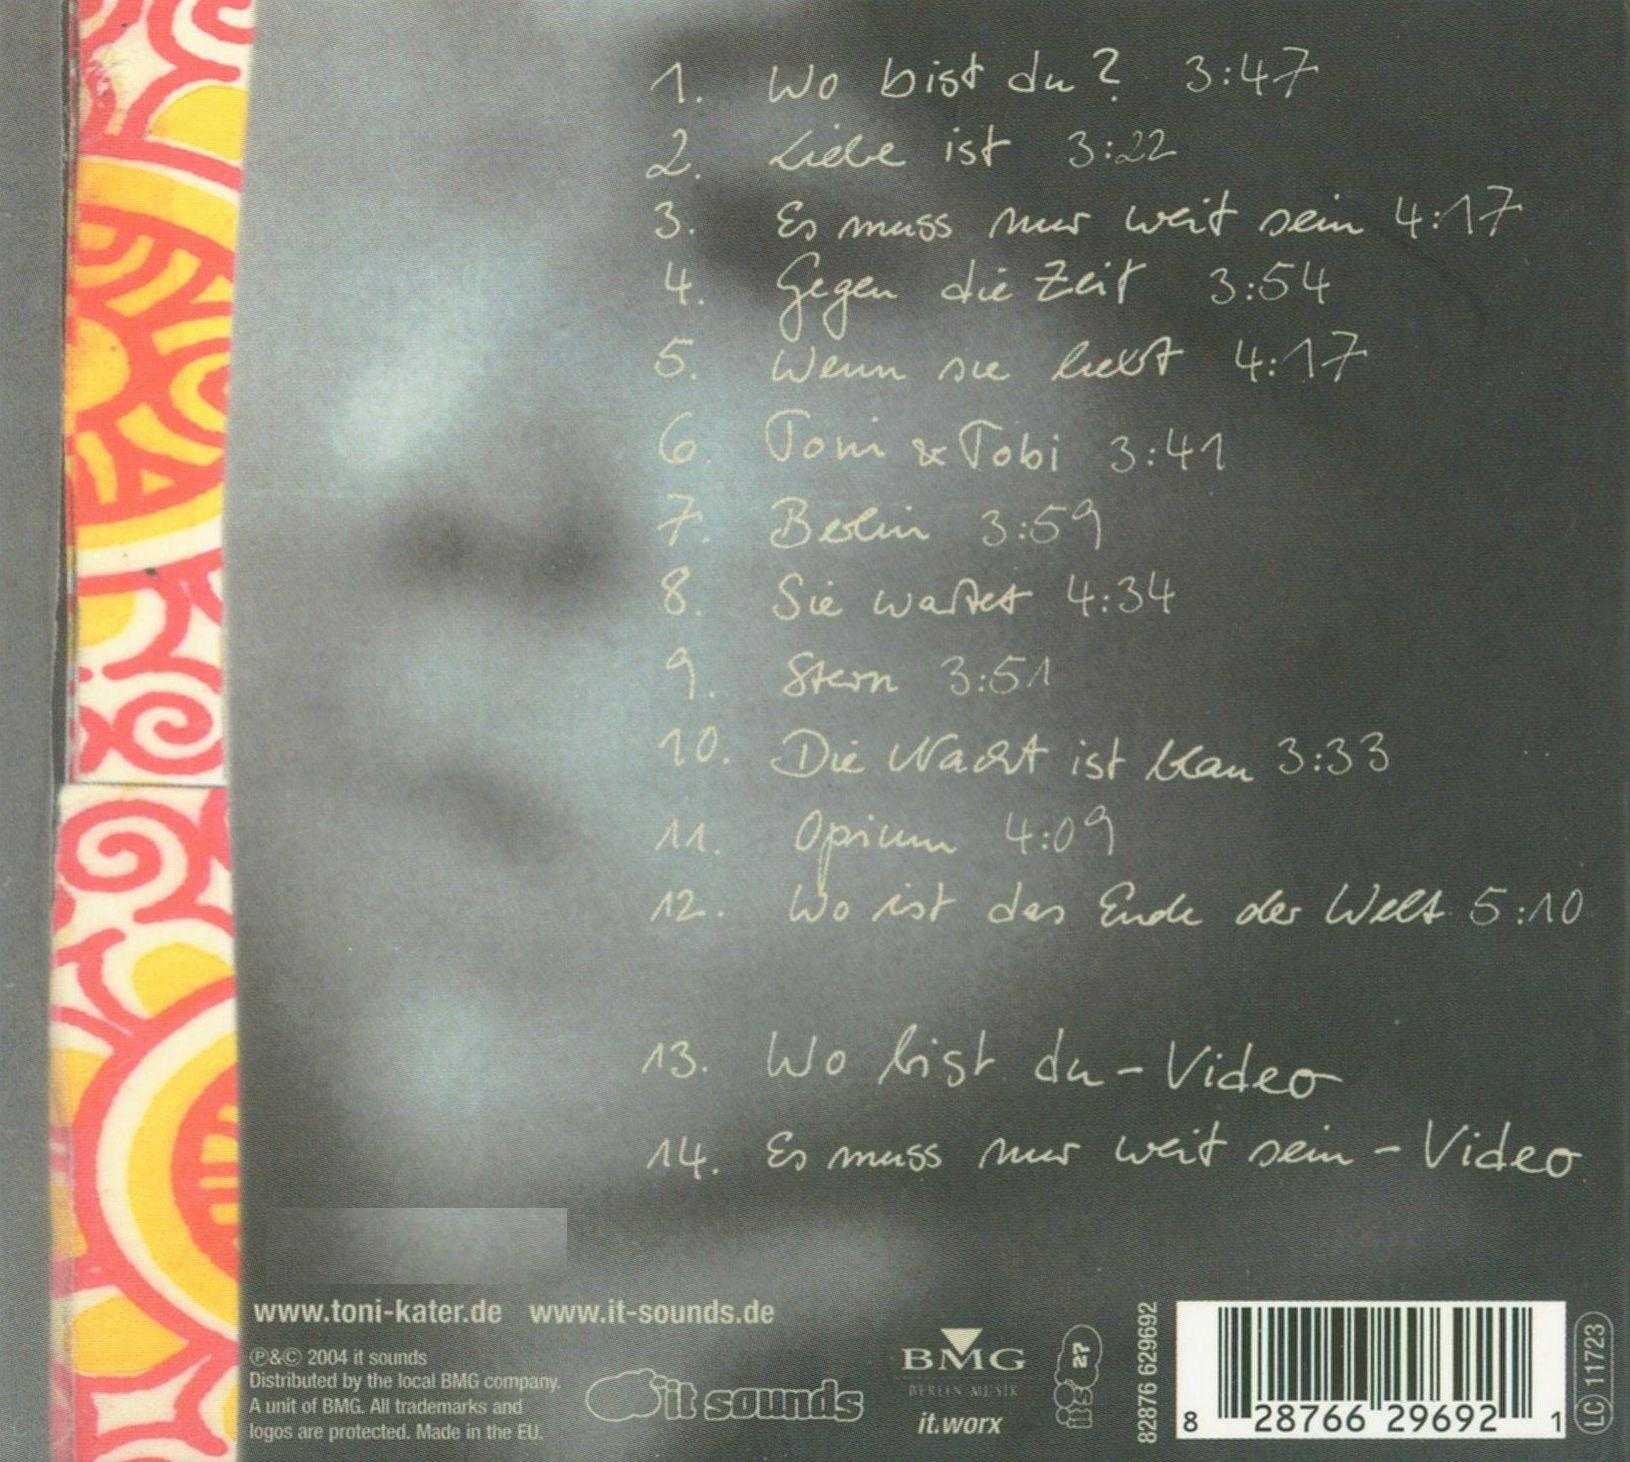 1. Wo bist du? 3:47
2. Liebe ist 3:22
3. Es muss nur weit sein 4:17
4. Gegen die Zeit 3:54
5. Wenn sie liebt 4:17
6. Toni & Tobi 3:41
7. Berlin 3:59
8. Sie wartet 4:34
9. Stern 3:51
10. Die Nacht ist blau 3:33
11. Opium 4:09
12. Wo ist das Ende der Welt 5:10
13. Wo bist du - Video
14. Es muss nur weit sein - Video
www.toni-kater.de www.it-sounds.de
℗&© 2004 it sounds
Distributed by the local BMG company.
A unit of BMG. All trademarks and
logos are protected. Made in the EU.
it sounds
BMG
BERLIN MUSIK
it.worx
it's 27
82876 629692
8 28766 29692 1
LC 11723